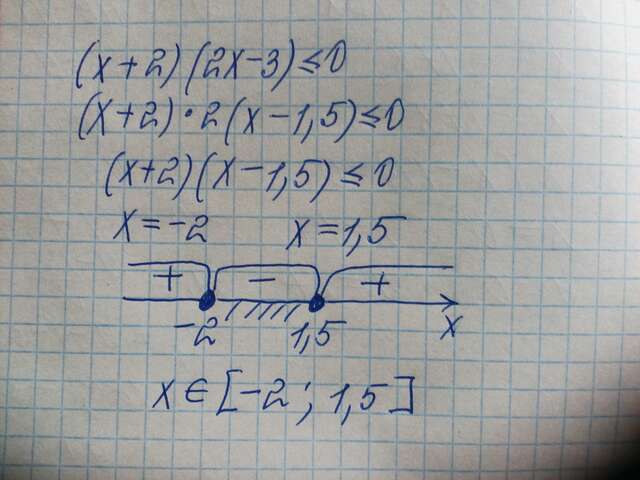 (x+2)(2x-3)≤0
(x+2)·2(x-1,5)≤0
(x+2)(x-1,5)≤0
x=-2 x=1,5
+ - +
-2 1,5 x
x∈[-2; 1,5]